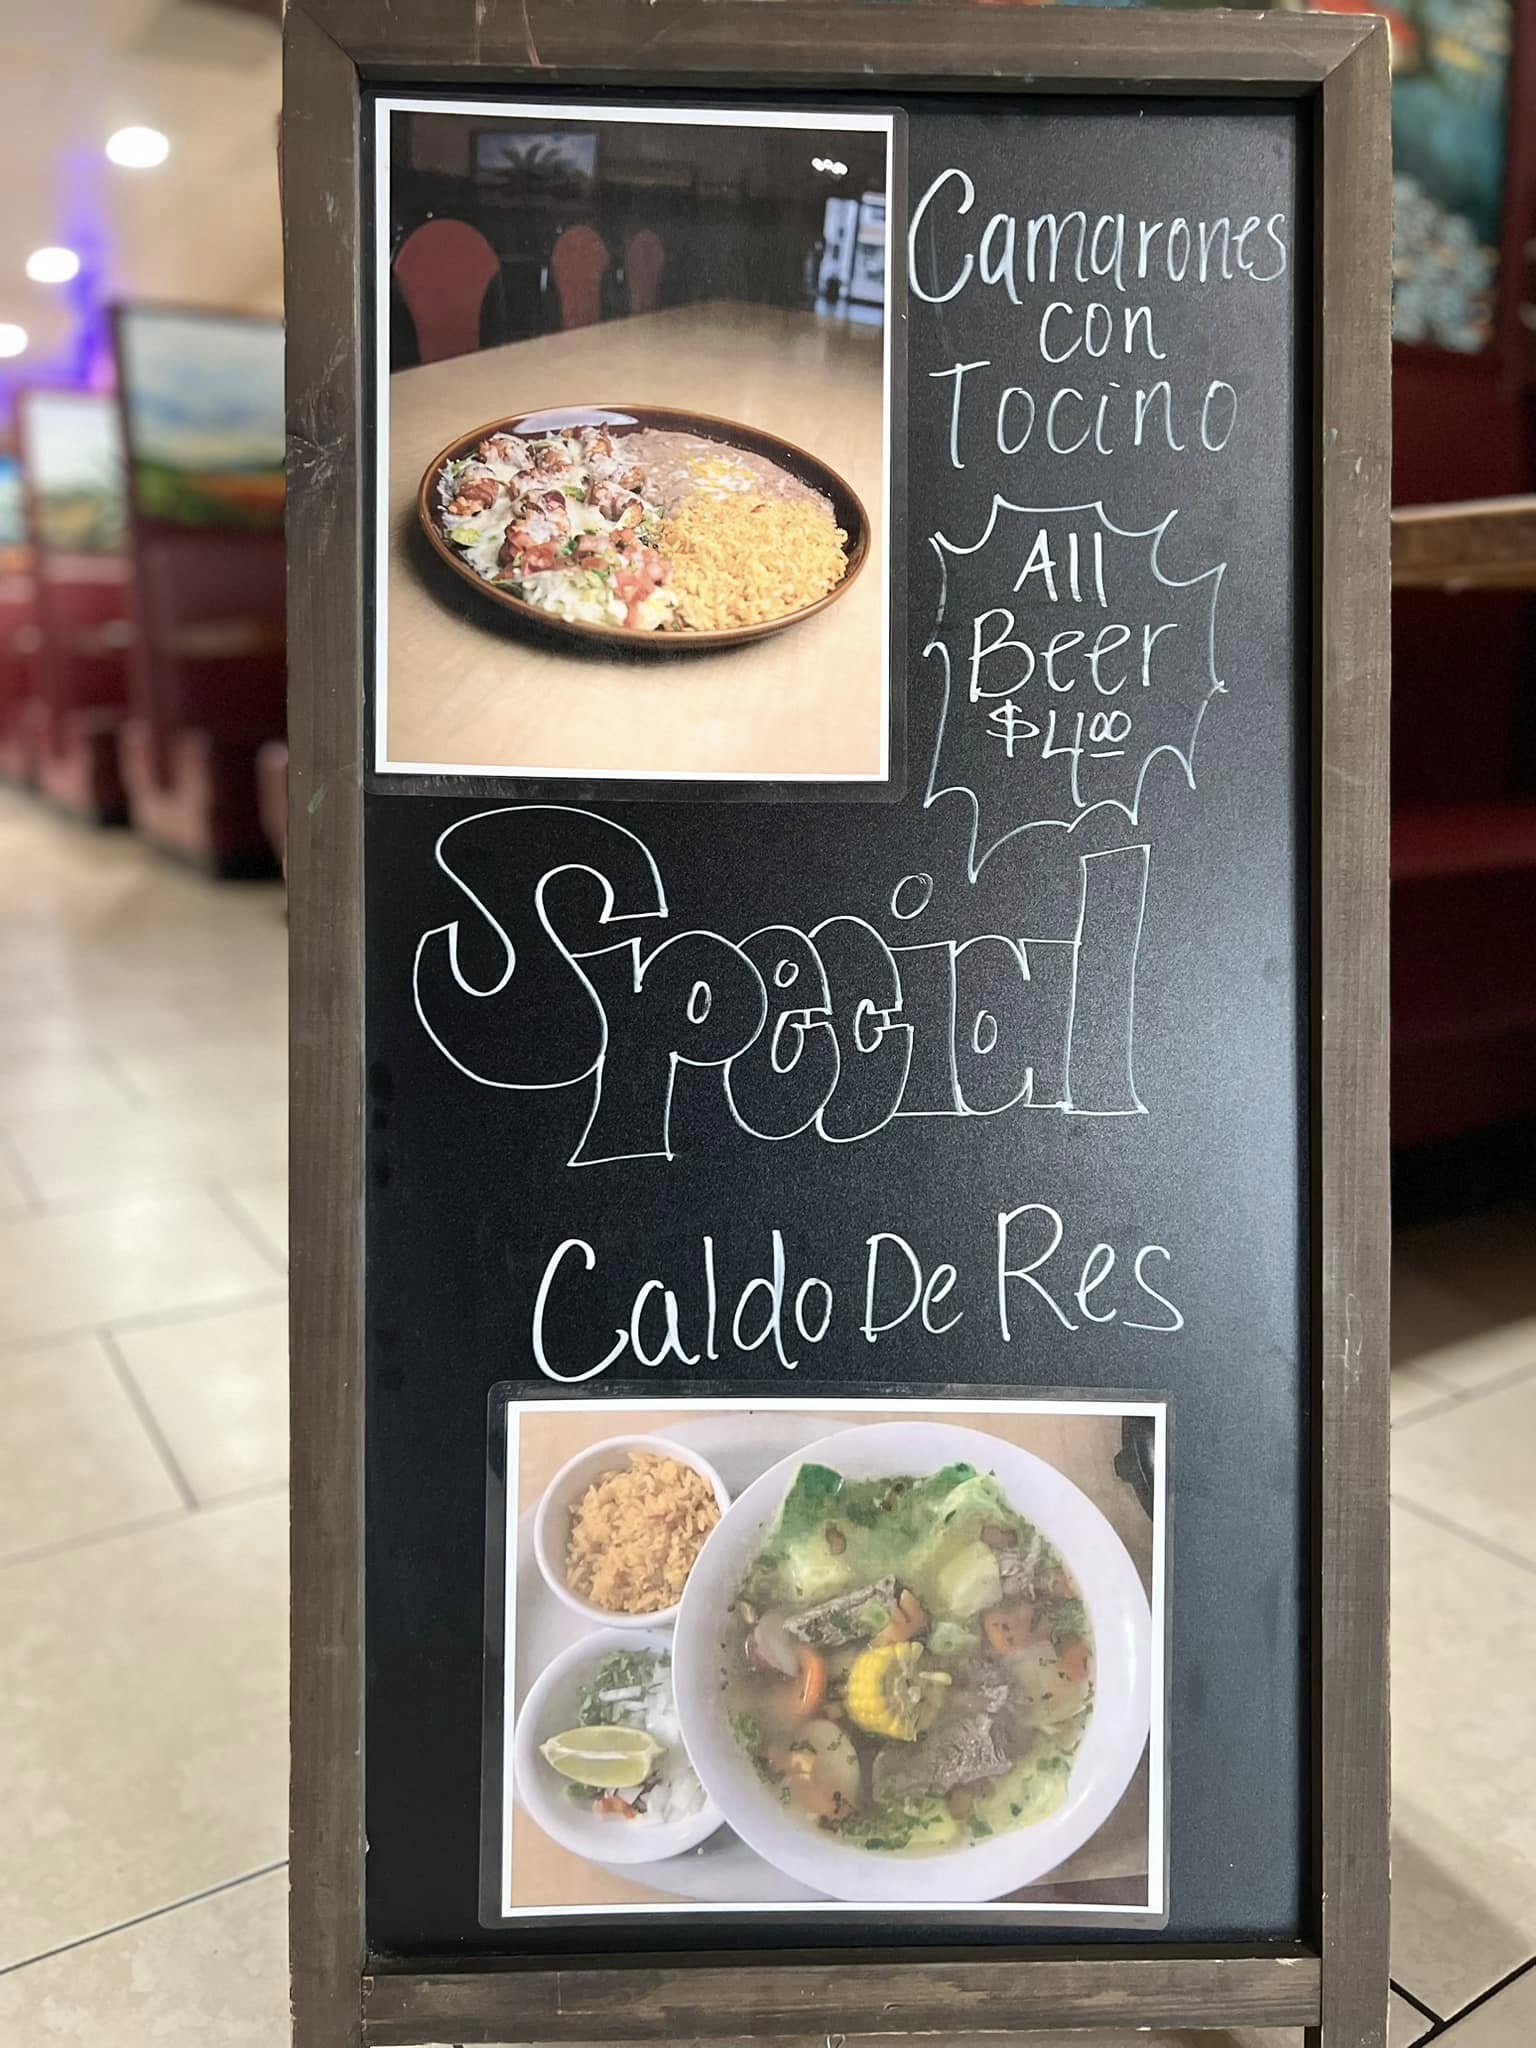 Camarones
con
Tocino
All
Beer
$4.00
Special
Caldo De Res